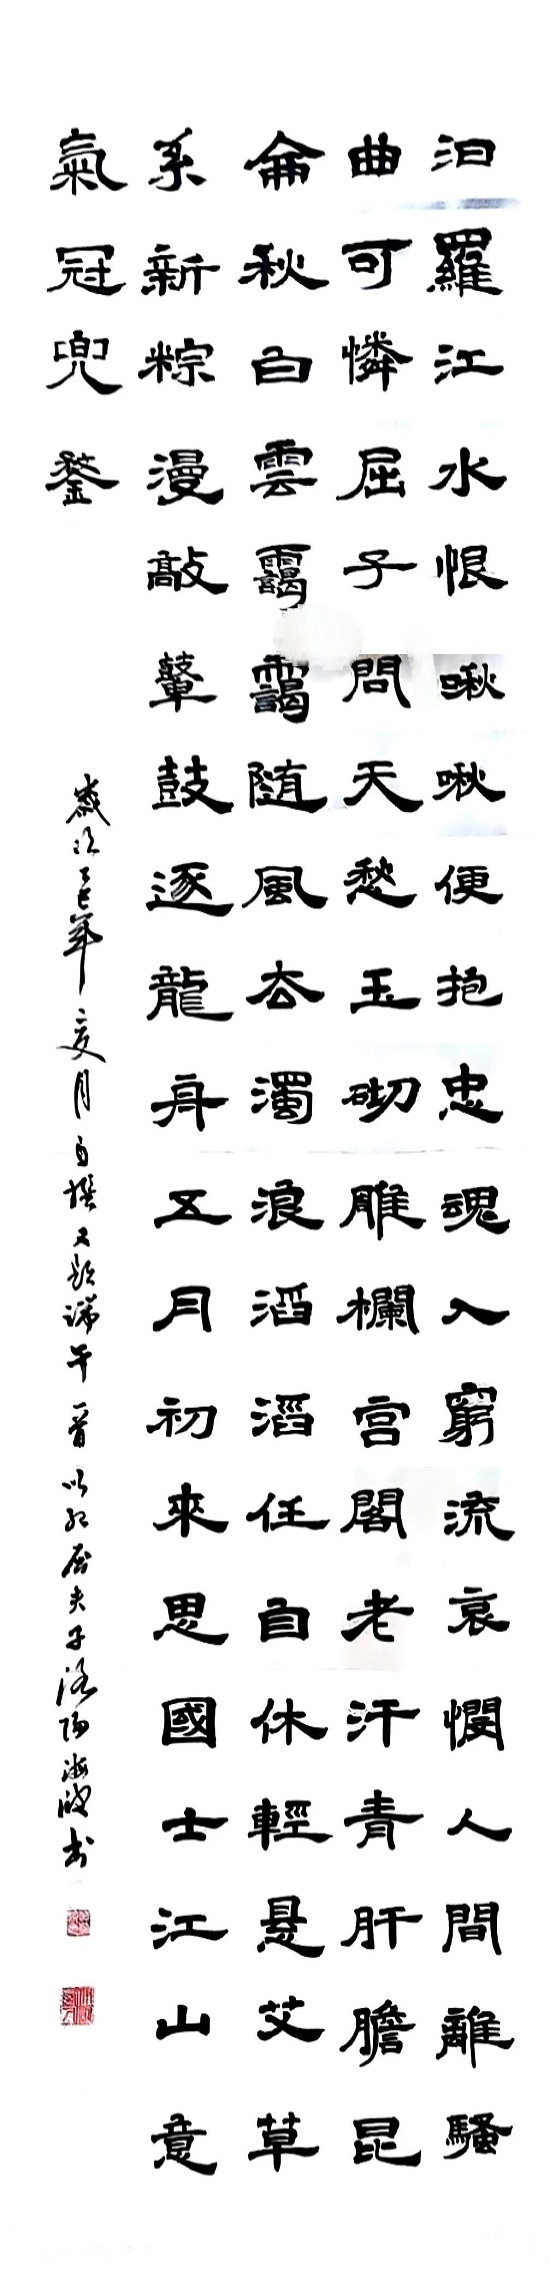 汨羅江水恨啾啾便抱忠魂入窮流哀憫人間離騷
曲可憐屈子問天愁玉砌雕欄宫閣老汗青肝膽昆
侖秋白雲靄靄随風去濁浪滔滔任自休輕懸艾草
系新粽漫敲鼙鼓逐龍舟五月初來思國士江山意
氣冠兜鍪
歲次乙巳年 夏月自撰又題端午一首以紀屈夫子洛陽海波书